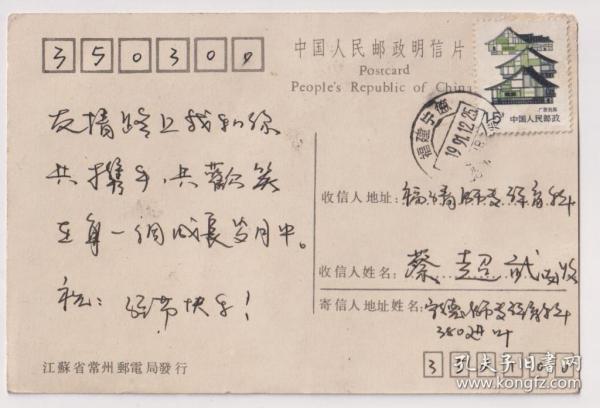 350300
中国人民邮政明信片
Postcard
People's Republic of China
广东民居
中国人民邮政
福建宁德
1991.12.25
友情路上我和你
共携手,共歡笑
在每一個成長岁月中。
祝:经常快乐!
收信人地址:福清師专体育科
收信人姓名:蔡超武
寄信人地址姓名:宁德师专体育科
江蘇省常州郵電局發行
孔夫子旧书网
www.kongfz.com